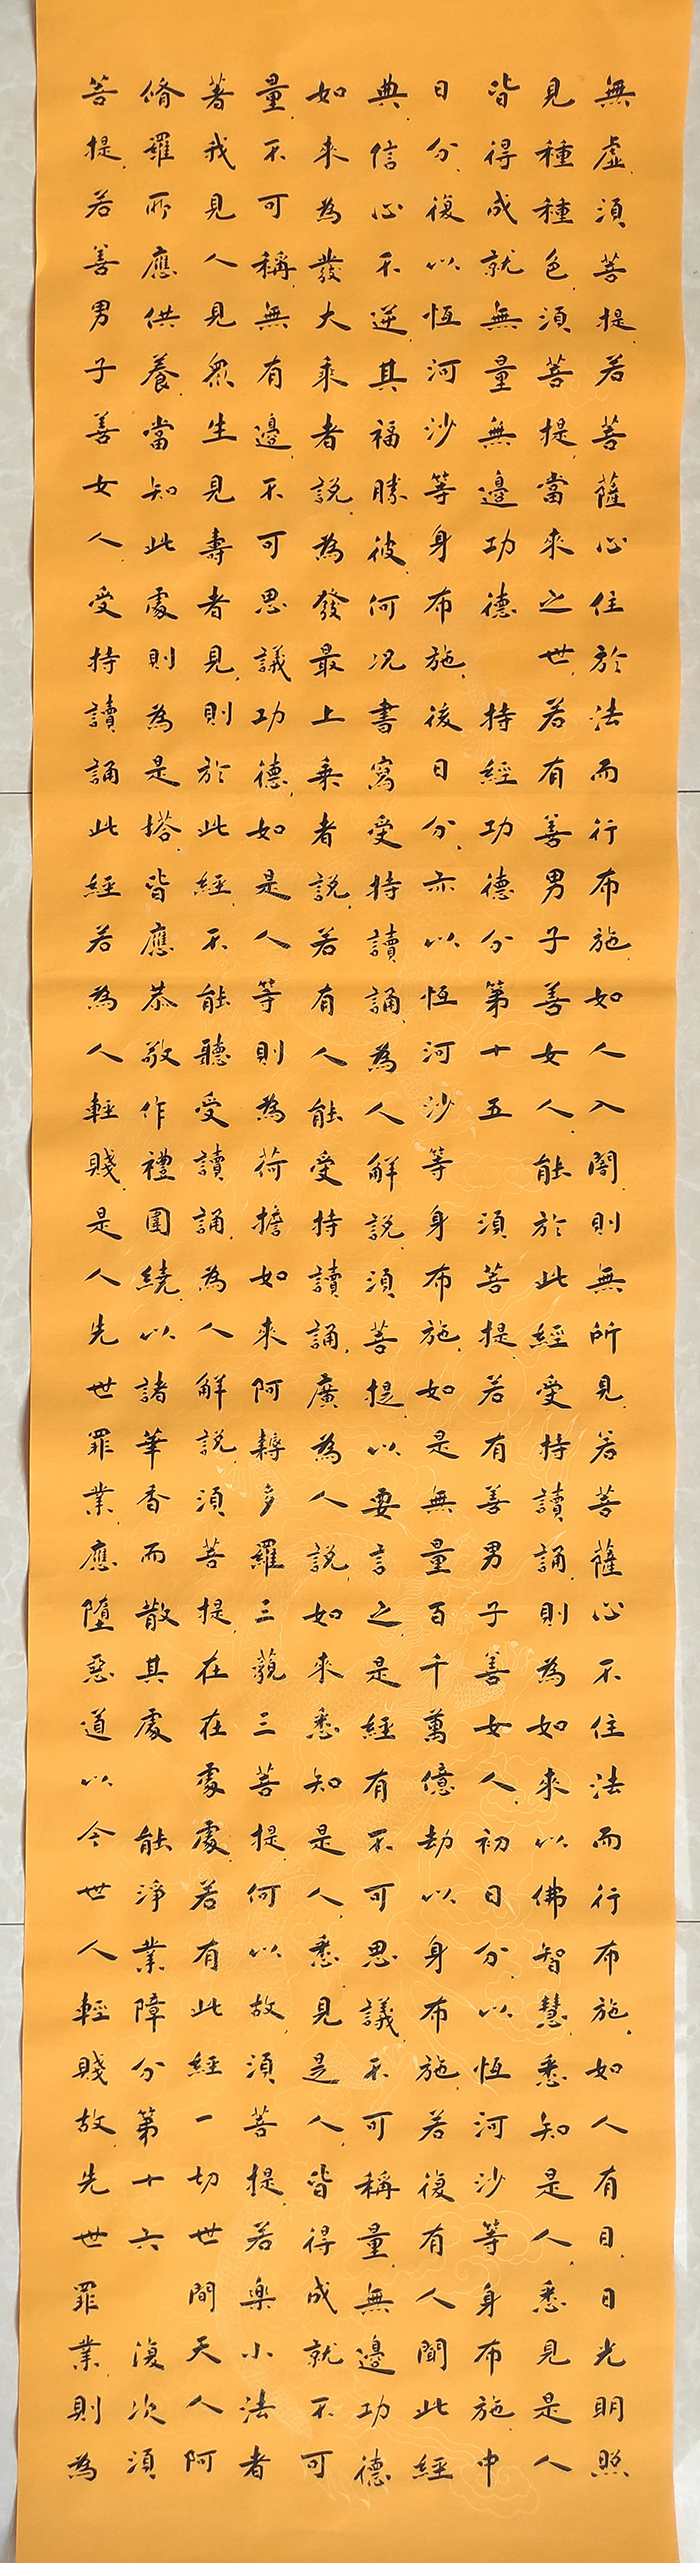 無虛須菩提若菩薩心住於法而行布施如人入闇則無所見若菩薩心不住法而行布施如人有目日光明照
見種種色須菩提當來之世若有善男子善女人能於此經受持讀誦則為如來以佛智慧悉知是人悉見是人
皆得成就無量無邊功德 持經功德分第十五 須菩提若有善男子善女人初日分以恆河沙等身布施中
日分復以恆河沙等身布施後日分亦以恆河沙等身布施如是無量百千萬億劫以身布施若復有人聞此經
典信心不逆其福勝彼何況書寫受持讀誦為人解說須菩提以要言之是經有不可思議不可稱量無邊功德
如來為發大乘者說為發最上乘者說若有人能受持讀誦廣為人說如來悉知是人悉見是人皆得成就不可
量不可稱無有邊不可思議功德如是人等則為荷擔如來阿耨多羅三藐三菩提何以故須菩提若樂小法者
著我見人見眾生見壽者見則於此經不能聽受讀誦為人解說須菩提在在處處若有此經一切世間天人阿
脩羅所應供養當知此處則為是塔皆應恭敬作禮圍繞以諸華香而散其處 能淨業障分第十六 復次須
菩提若善男子善女人受持讀誦此經若為人輕賤是人先世罪業應墮惡道以今世人輕賤故先世罪業則為